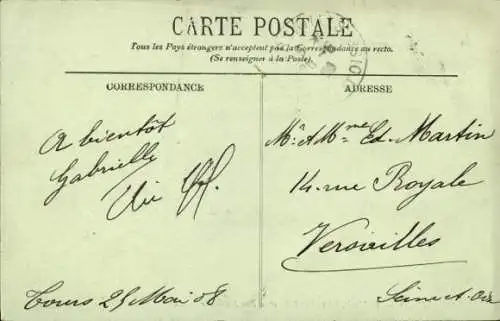 CARTE POSTALE
Tous les Pays étrangers n'acceptent pas la Correspondance au recto.
(Se renseigner à la Poste).
CORRESPONDANCE
A bientôt
Gabrielle
Tours 25 Mai 08
ADRESSE
Mr & Mme Ed. Martin
14 rue Royale
Versailles
Seine & Oise